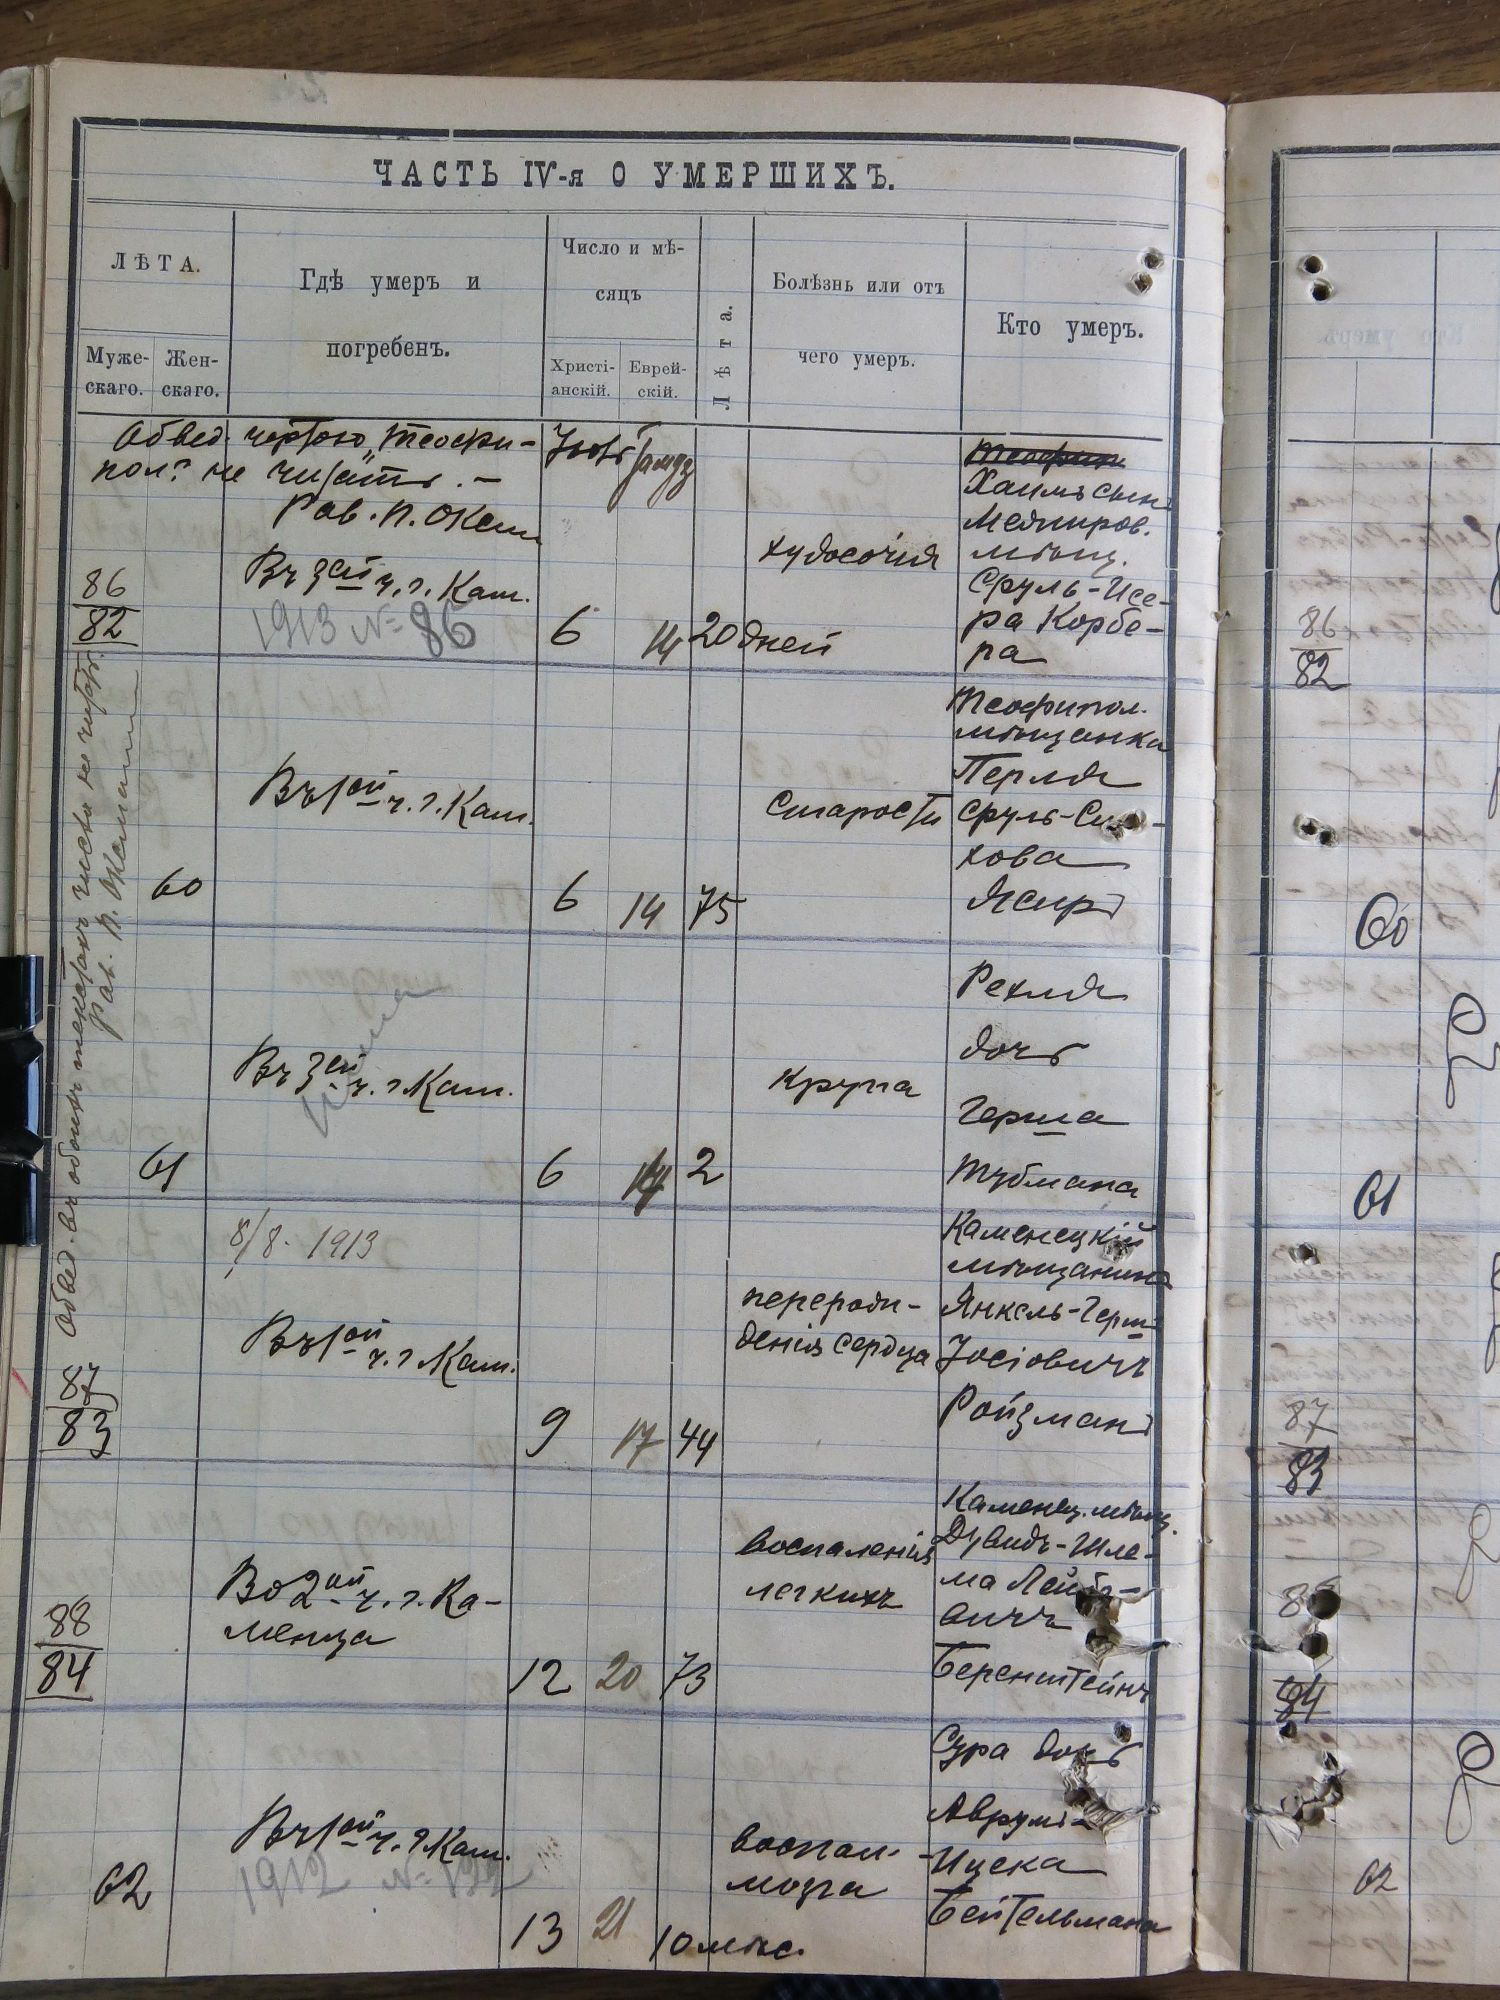 ЧАСТЬ IV-я О УМЕРШИХЪ.
ЛѢТА.
Муже-
скаго.
Жен-
скаго.
Гдѣ умеръ и
погребенъ.
Число и мѣ-
сяцъ
Христі-
анскій.
Еврей-
скій.
Лѣта.
Болѣзнь или отъ
чего умеръ.
Кто умеръ.
Обвед. чертою „Теофи-
пол." не читать. –
Рав. П. Окси
Іюль
Тамуз
86
82
Въ 3ей ч. г. Кам.
1913 № 86
6
14
20 дней
худосочія
Хаимъ сынъ
Меджиров.
мѣщ.
Сруль-Исе-
ра Корбе-
ра
60
Въ 1ой ч. г. Кам.
6
14
75
Старости
Теофипол.
мѣщанка
Перля
Сруль-
хова
Ясиръ
61
Въ 3ей ч. г. Кам.
6
14
2
крупа
Рехля
дочь
Герша
Тубмана
8/8. 1913
87
83
Въ 1ой ч. г. Кам.
9
17
44
перерож-
денія сердца
Каменецкій
мѣщанинъ
Янкель-Герш
Іосіовичъ
Ройзманъ
88
84
Во 2ой ч. г. Ка-
менца
12
20
73
воспаленія
легкихъ
Каменец. мѣщ.
Дувидъ-Шле-
ма Лейбо-
вичъ
Беренштейнъ
62
Въ 1ой ч. г. Кам.
1912 № 122
13
21
10 мѣс.
воспал.
мозга
Сура дочь
Аврумъ-
Ицека
Бейтельмана
Обвед. въ обоихъ текстахъ число не чит.
Рав. П. Окси
86
82
60
61
87
83
84
62